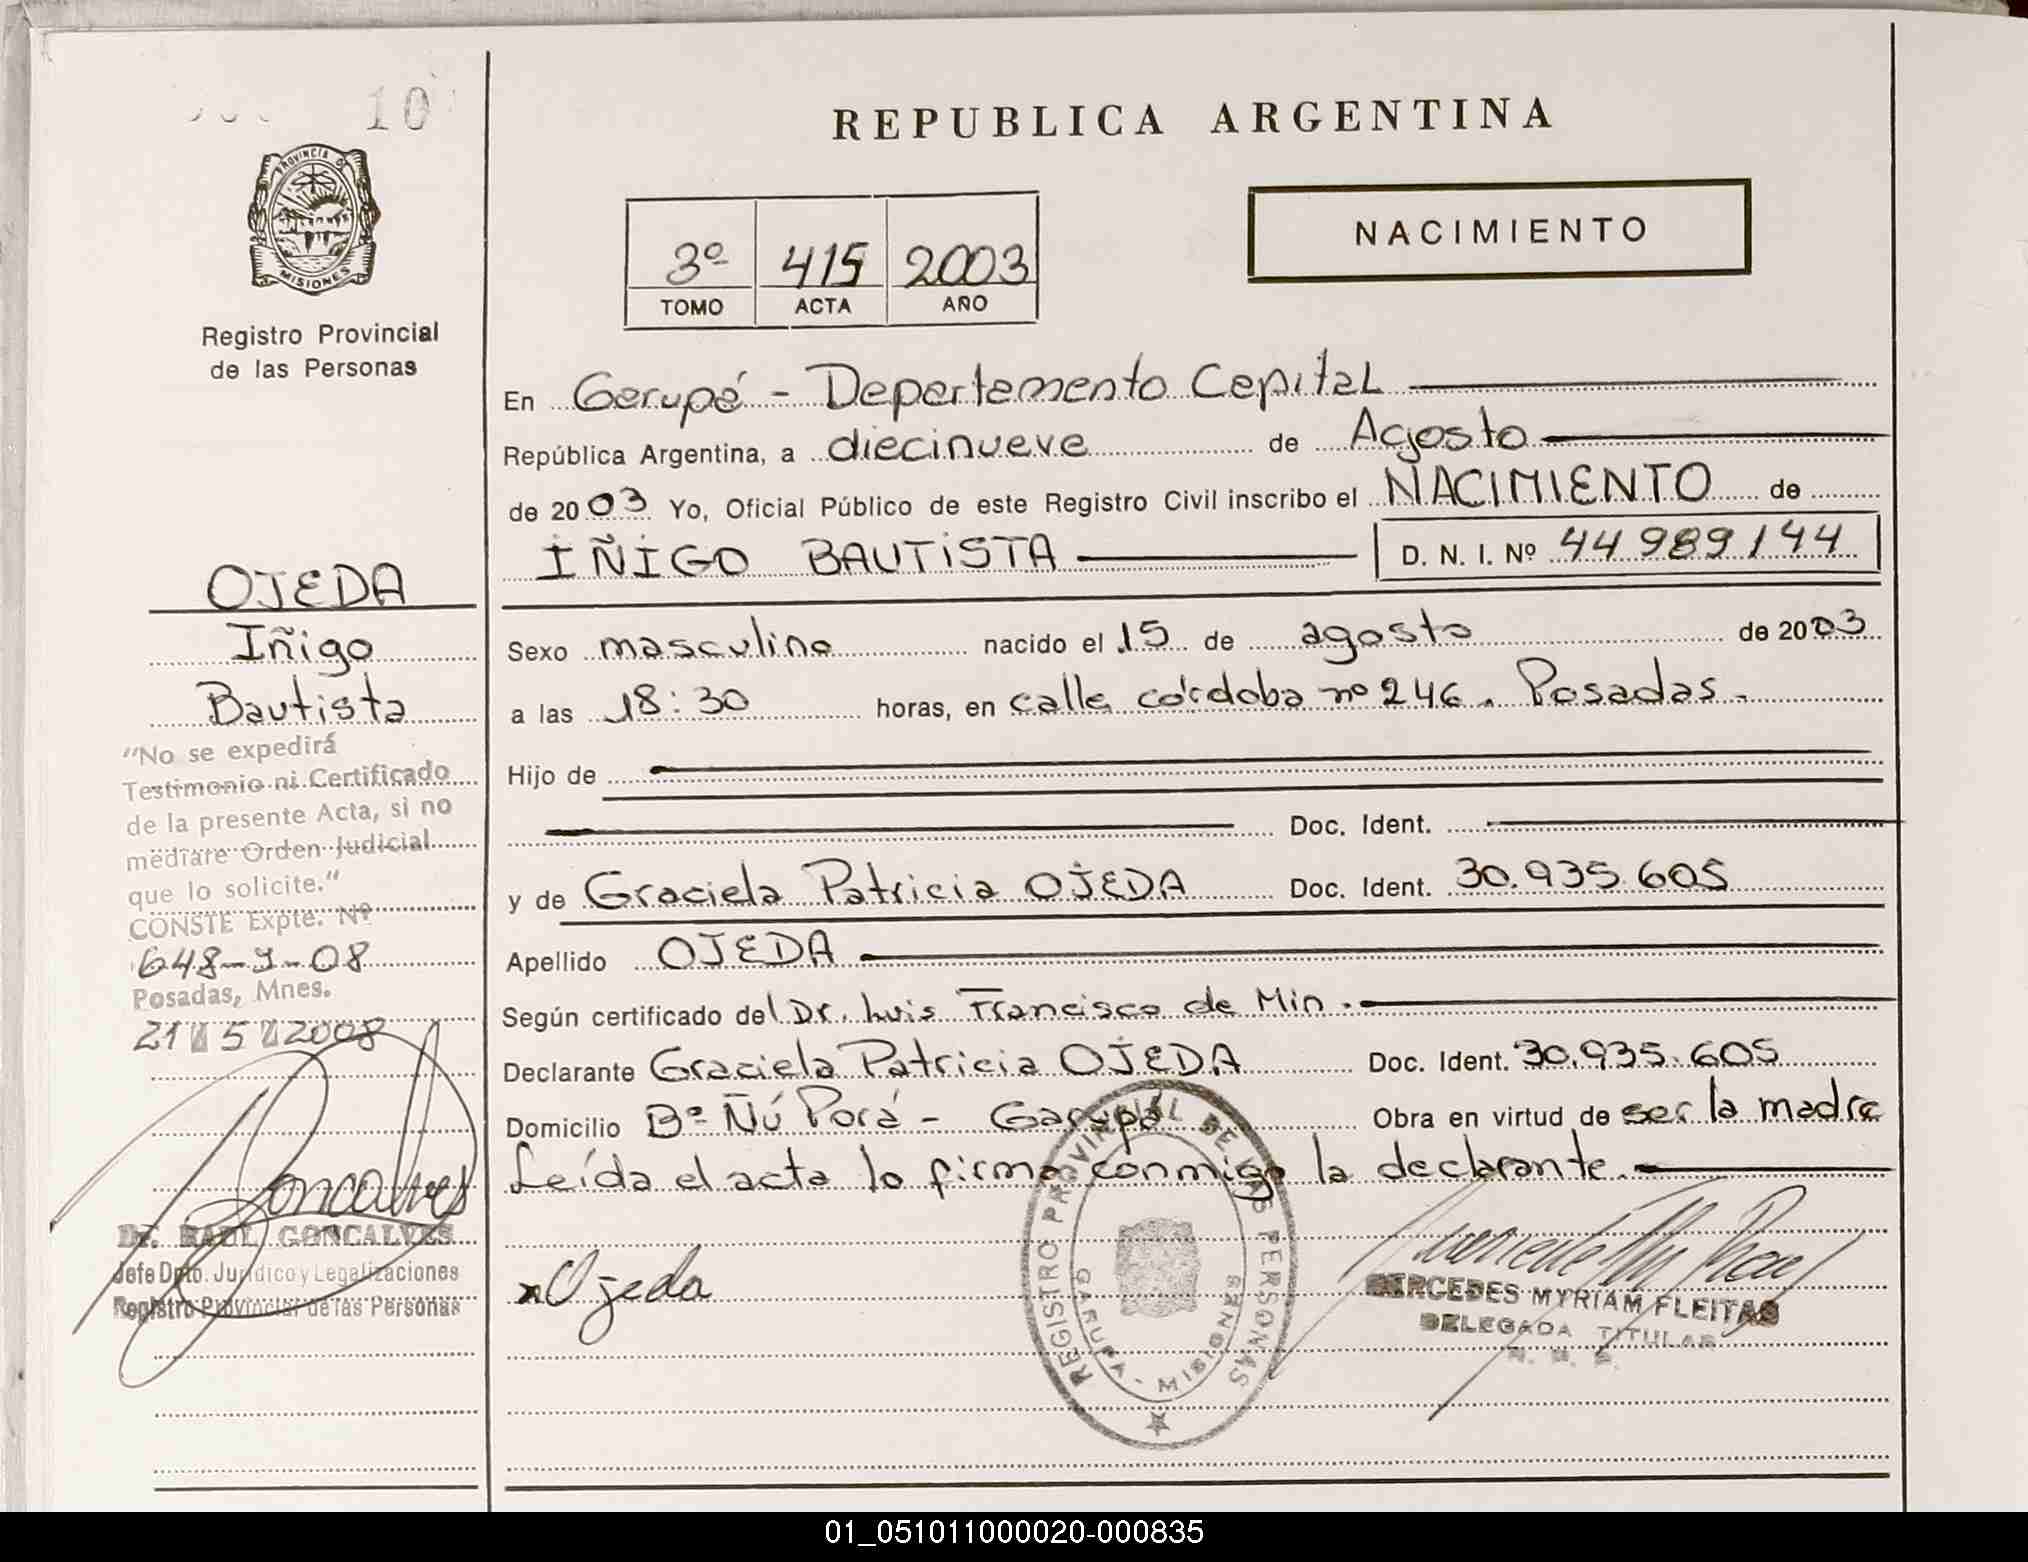 10
PROVINCIA DE
MISIONES
Registro Provincial
de las Personas
OJEDA
Iñigo
Bautista
"No se expedirá
Testimonio ni Certificado
de la presente Acta, si no
mediare Orden Judicial
que lo solicite."
CONSTE Expte. Nº
648-J-08
Posadas, Mnes.
21 5 2008
Goncalves
Dr. RAUL GONCALVES
Jefe Dpto. Jurídico y Legalizaciones
Registro Provincial de las Personas
REPUBLICA ARGENTINA
3º 415 2003
TOMO ACTA AÑO
NACIMIENTO
En Garupá - Departamento Capital
República Argentina, a diecinueve de Agosto
de 2003 Yo, Oficial Público de este Registro Civil inscribo el NACIMIENTO de
IÑIGO BAUTISTA D. N. I. Nº 44989144
Sexo masculino nacido el 15 de agosto de 2003
a las 18:30 horas, en calle córdoba nº 246. Posadas.
Hijo de
Doc. Ident.
y de Graciela Patricia OJEDA Doc. Ident. 30.935.605
Apellido OJEDA
Según certificado del Dr. Luis Francisco de Min.
Declarante Graciela Patricia OJEDA Doc. Ident. 30.935.605
Domicilio Bº Ñú Porá - Garupá Obra en virtud de ser la madre
Leída el acta lo firma conmigo la declarante.
x Ojeda
REGISTRO PROVINCIAL DE LAS PERSONAS
GARUPA - MISIONES
MERCEDES MYRIAM FLEITAS
DELEGADA TITULAR
01_051011000020-000835